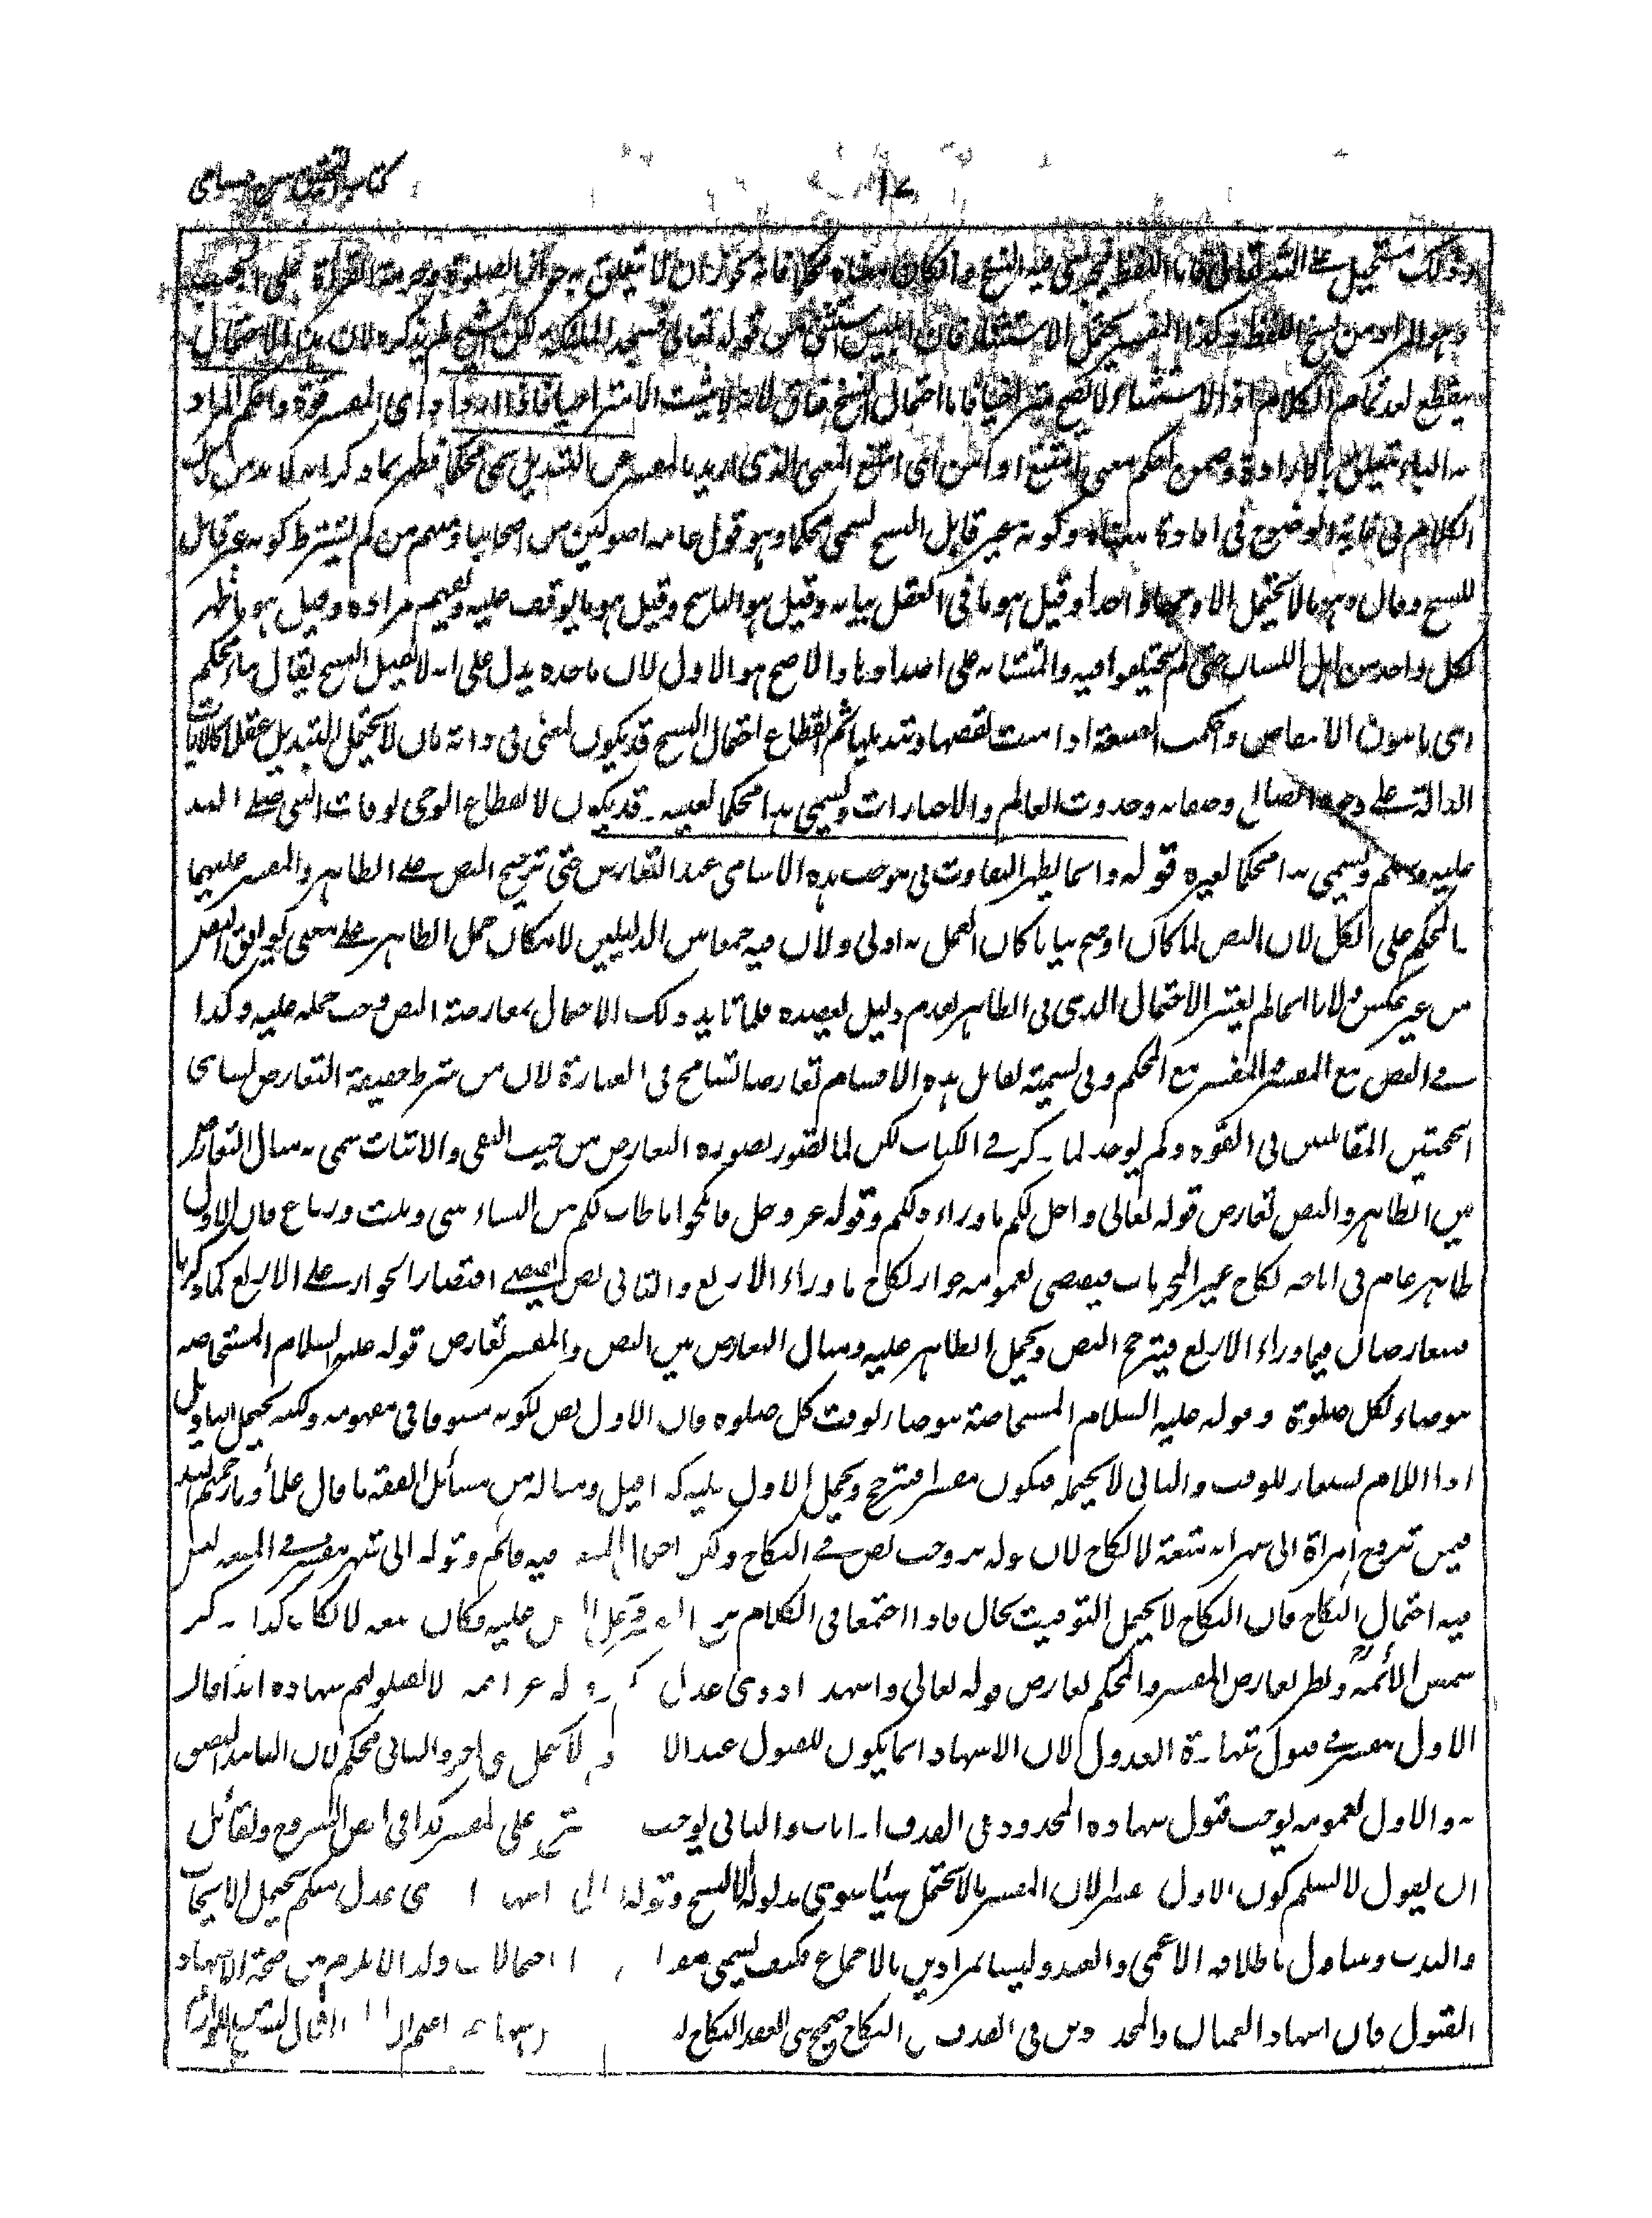 كتاب التحقيق شرح حسامى
١٧
وذلك مستحيل على الله تعالى فاما اللفظ فيجرى فيه النسخ وان كان معناه محكما فانه يجوز ان لا تتعلق به جواز الصلوة وحرمة القراءة على الجنب
وهو المراد من نسخ اللفظ وكذا المفسر يحتمل الاستثناء فان ابليس استثنى من قوله تعالى فسجد الملئكة لكن الشيخ لم يذكره لان هذا الاحتمال
ينقطع بعد تمام الكلام اذ الاستثناء لا يصح متراخيا فاما احتمال النسخ فباق لانه لا يثبت الا متراخيا فاذا ازداد اى المفسر قوة واحكم المراد
به الباء يتعلق بالارادة وضمن احكم معنى امتنع او امن اى امتنع المعنى الذى اريد بالمفسر عن التبديل سمى محكما فظهر بما ذكر انه لا بد من كون
الكلام فى غاية الوضوح فى افادة معناه وكونه غير قابل للنسخ ليسمى محكما وهو قول عامة اصوليين من اصحابنا ومنهم من لم يشترط كونه غير قابل
للنسخ وقال هو ما لا يحتمل الا وجها واحدا وقيل هو ما فى العقل بيانه وقيل هو الناسخ وقيل هو ما يوقف عليه ويفهم مراده وقيل هو ما ظهر
لكل واحد من اهل اللسان حتى لم يختلفوا فيه والمتشابه على اضدادها والاصح هو الاول لان ماخذه يدل على انه لا يقبل النسخ يقال بناء محكم
اى مامون الانتقاض واحكمت الصنعة اذا امنت نقضها وتبديلها ثم انقطاع احتمال النسخ قد يكون لمعنى فى ذاته بان لا يحتمل التبديل عقلا كالايات
الدالة على وجود الصانع وصفاته وحدوث العالم والاخبارات ويسمى هذا محكما لعينه وقد يكون لانقطاع الوحى بوفات النبى صلى الله
عليه وسلم ويسمى هذا محكما لغيره قوله وانما يظهر التفاوت فى موجب هذه الاسامى عند التعارض حتى ترجح النص على الظاهر والمفسر عليهما
والمحكم على الكل لان النص لما كان اوضح بيانا كان العمل به اولى ولان فيه جمعا بين الدليلين لامكان حمل الظاهر على معنى يوافق النص
من غير عكس ولانا انما لم نعتبر الاحتمال الذى فى الظاهر لعدم دليل يعضده فلما تايد ذلك الاحتمال بمعارضة النص وجب حمله عليه وكذا
فى النص مع المفسر والمفسر مع المحكم وفى تسمية تقابل هذه الاقسام تعارضا تسامح فى العبارة لان من شرط حقيقة التعارض تساوى
الحجتين المتقابلتين فى القوة ولم يوجد لما ذكر فى الكتاب لكن لما تصور بصورة التعارض من حيث النفى والاثبات سمى به مثال التعارض
بين الظاهر والنص تعارض قوله تعالى واحل لكم ما وراء ذلكم وقوله عز وجل فانكحوا ما طاب لكم من النساء مثنى وثلث ورباع فان الاول
ظاهر عام فى اباحة نكاح غير المحرمات فيقتضى بعمومه جواز نكاح ما وراء الاربع والثانى نص يقتضى اقتصار الجواز على الاربع كما ذكرنا
فيتعارضان فيما وراء الاربع فيترجح النص ويحمل الظاهر عليه ومثال التعارض بين النص والمفسر تعارض قوله عليه السلام المستحاضة
تتوضأ لكل صلوة وقوله عليه السلام المستحاضة تتوضأ لوقت كل صلوة فان الاول نص لكونه مسوقا فى مفهومه ولكنه يحتمل التاويل
اذ اللام يستعار للوقت والثانى لا يحتمله فيكون مفسرا فيترجح ويحمل الاول عليه كذا قيل ومثاله من مسائل الفقه ما قال علماؤنا رحمهم الله
فيمن تزوج امرأة الى شهر انه متعة لا نكاح لان قوله تزوجت نص فى النكاح ولكن احتمال المتعة فيه قائم وقوله الى شهر مفسر فى المتعة ليس
فيه احتمال النكاح فان النكاح لا يحتمل التوقيت بحال فاذا اجتمعا فى الكلام عليه فكان متعة لا نكاحا كذا ذكر
شمس الائمة ونظير تعارض المفسر والمحكم تعارض قوله تعالى واشهدوا ذوى عدل وقوله عز اسمه لا تقبلوا لهم شهادة ابدا فان
الاول مفسر فى قبول شهادة العدول لان الاشهاد انما يكون للقبول عند الاداء لا يحتمل معنى اخر والثانى محكم لان التابيد التصق
به والاول بعمومه يوجب قبول شهادة المحدود فى القذف اذا تاب والثانى يوجب على المفسر كذا فى بعض الشروح ولقائل
ان يقول لا نسلم كون الاول مفسرا لان المفسر ما لا يحتمل شيئا سوى مدلوله الا النسخ وقوله تعالى واشهدوا ذوى عدل منكم يحتمل الايجاب
والندب ويتناول باطلاقه الاعمى والعبد وليسا بمرادين بالاجماع فكيف يسمى مفسرا احتمالات ولذا لا يلزم من صحة الاشهاد
القبول فان اشهاد العميان والمحدودين فى القذف فى النكاح صحيح حتى انعقد النكاح